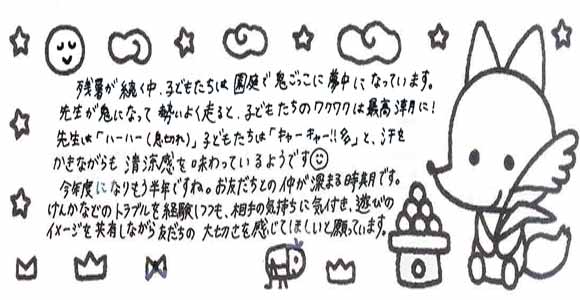 残暑が続く中、子どもたちは園庭で鬼ごっこに夢中になっています。
先生が鬼になって勢いよく走ると、子どもたちのワクワクは最高潮に!
先生は「ハーハー(息切れ)」子どもたちは「キャーキャー!!」と、汗を
かきながらも清涼感を味わっているようです☺
今年度になりもう半年ですね。お友だちとの仲が深まる時期です。
けんかなどのトラブルを経験しつつも、相手の気持ちに気付き、遊びの
イメージを共有しながら友だちの大切さを感じてほしいと願っています。